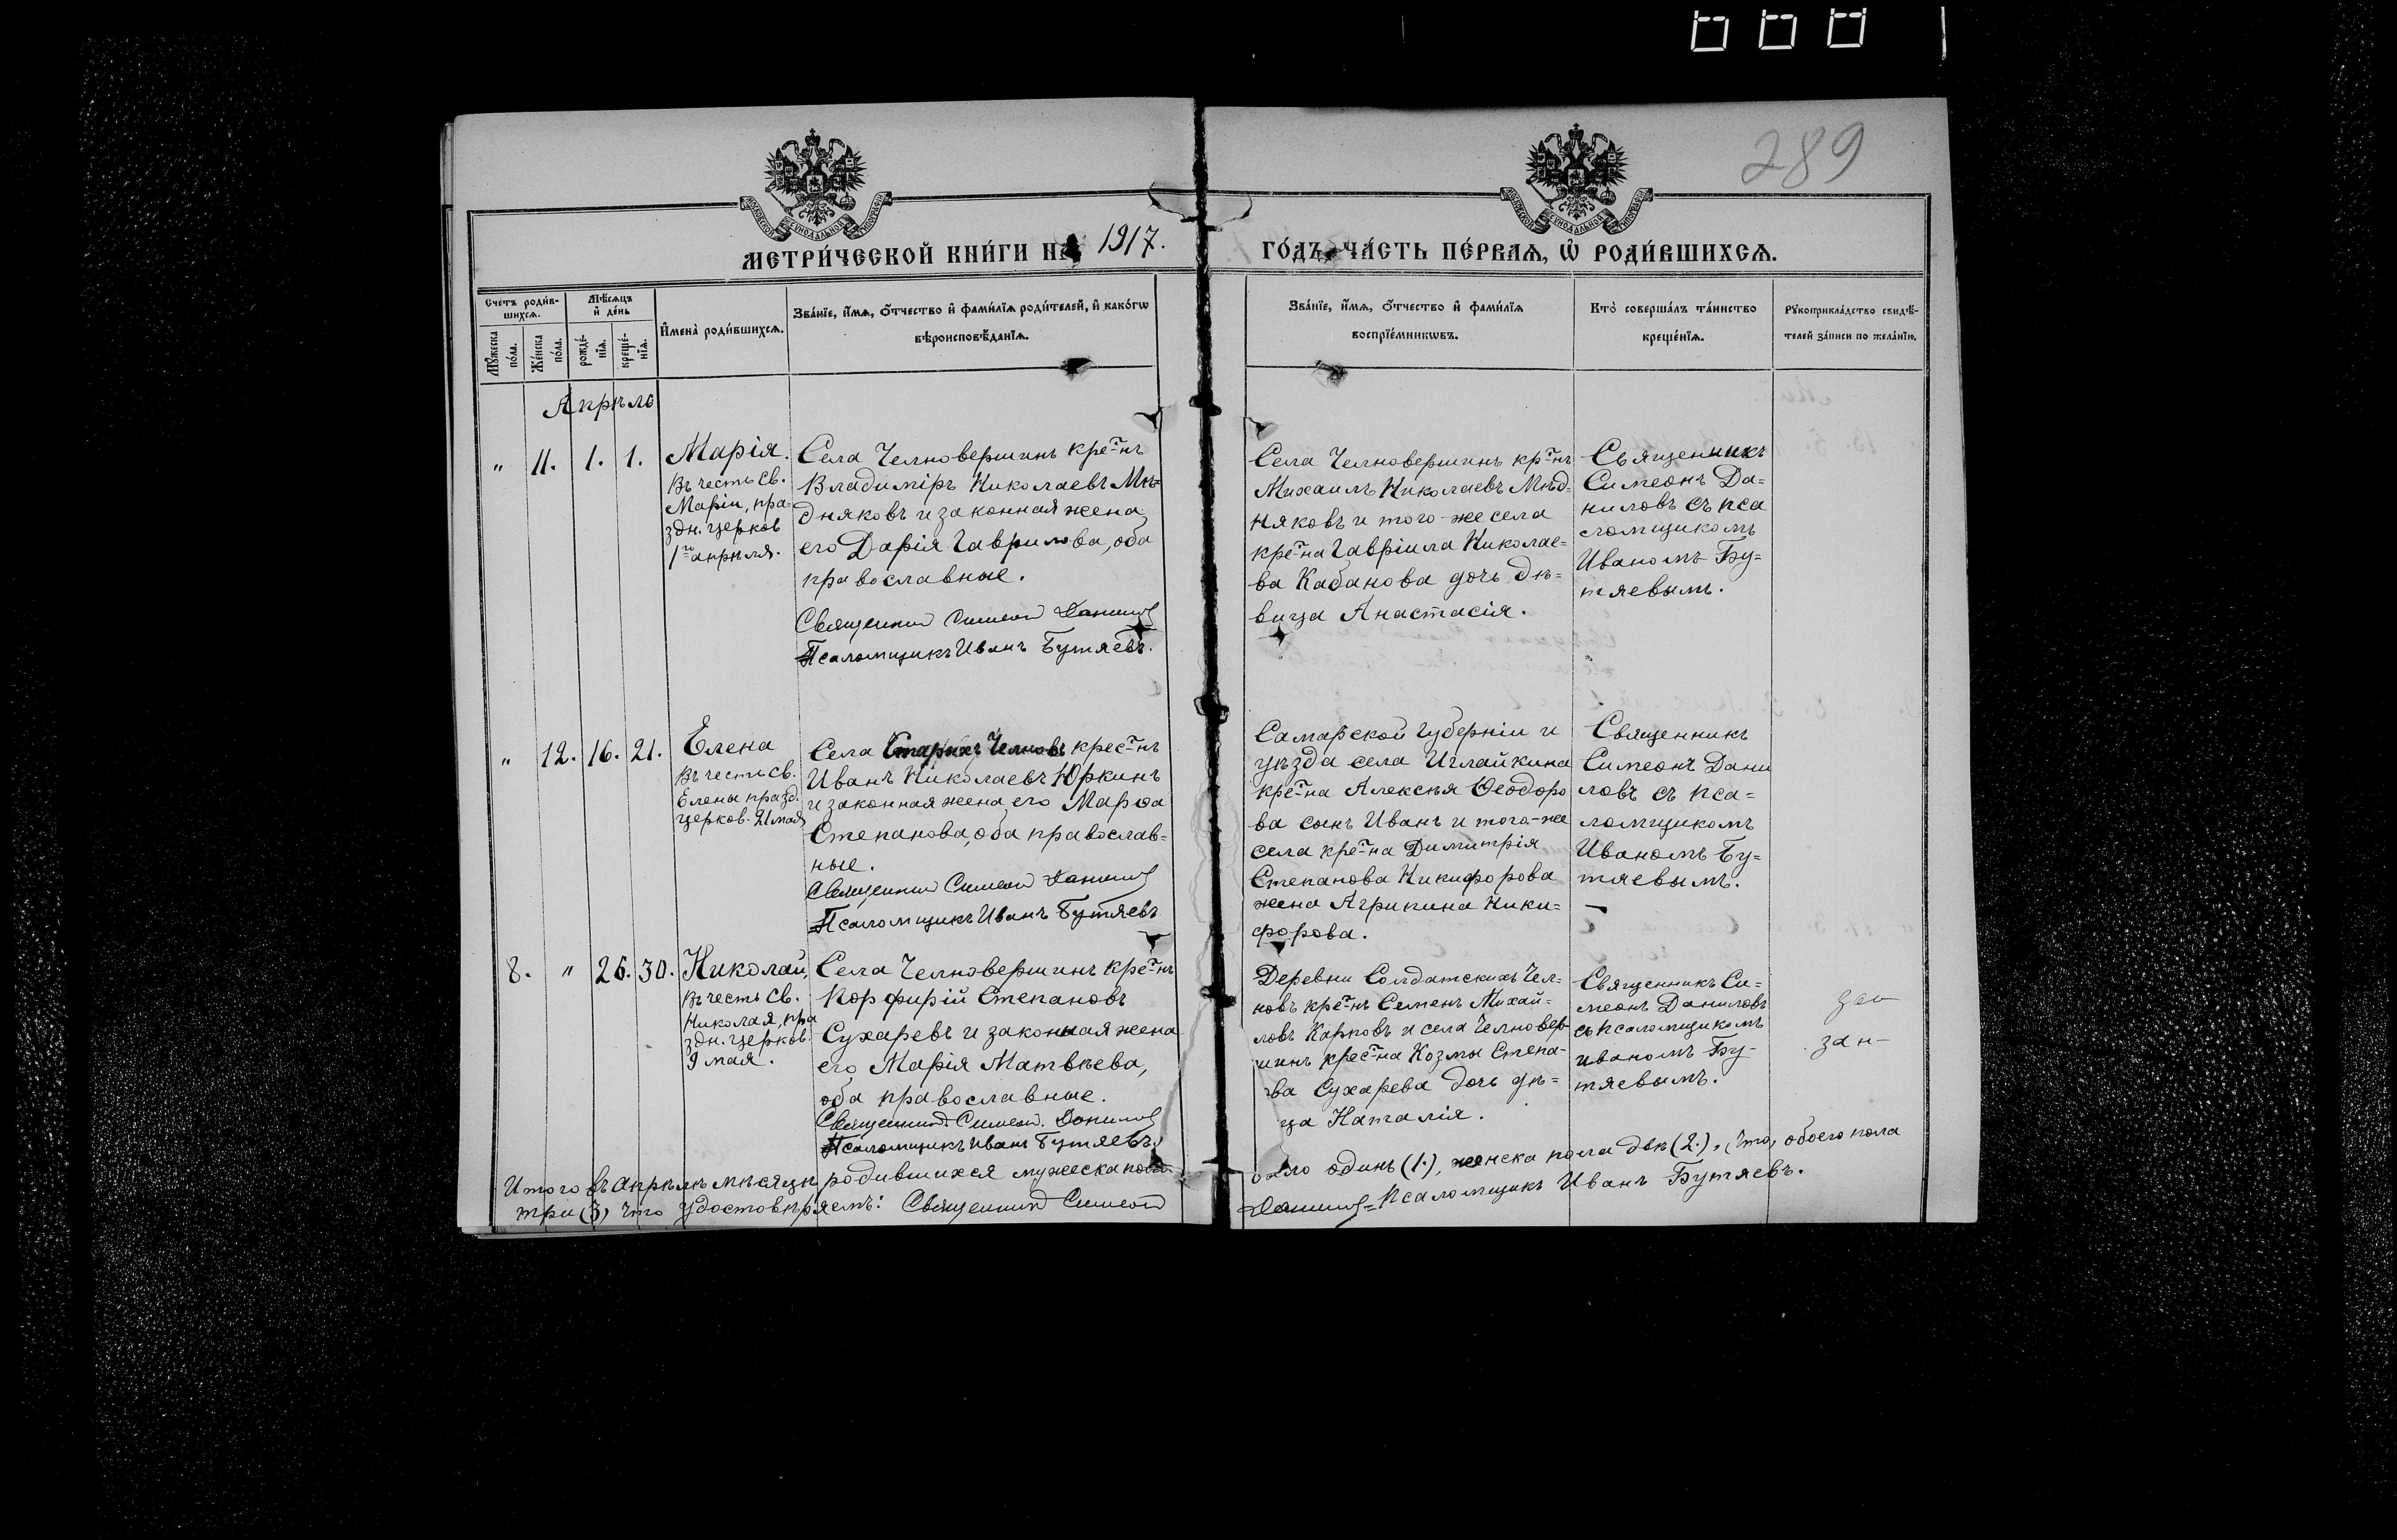 289
МЕТРИ́ЧЕСКОЙ КНИ́ГИ НА 1917.
ГО́ДЪ, ЧА́СТЬ ПЕ́РВАѦ, Ѡ҆ РОДИ́ВШИХСѦ.
Счетъ роди́в-
шихсѧ.
Мꙋ́жеска
по́ла.
Же́нска
по́ла.
Мѣ́сѧцъ
и҆ де́нь
рожде́-
нїѧ.
креще́-
нїѧ.
И҆мена̀ роди́вшихсѧ.
Зва́нїе, и҆́мѧ, ѻ҆́тчество и҆ фами́лїѧ роди́телей, и҆ како́гѡ
вѣроисповѣ́данїѧ.
Зва́нїе, и҆́мѧ, ѻ҆́тчество и҆ фами́лїѧ
воспрїе́мникѡвъ.
Кто̀ соверша́лъ та́инство
креще́нїѧ.
Рꙋкоприкла́дство свидѣ́-
телей за́писи по жела́нїю.
Апрѣль
" 11. 1. 1.
Марія.
Въ честь св.
Маріи, пра-
здн. церков
1го апрѣля.
Села Челновершинъ кре-тнъ
Владиміръ Николаевъ Мѣ-
дняковъ и законная жена
его Дарія Гаврилова, оба
православные.
Священник Симеон Данилов
Псаломщикъ Иванъ Бутяевъ.
Села Челновершинъ кр-тнъ
Михаилъ Николаевъ Мѣд-
няковъ и того-же села
кре-тна Гавріила Николае-
ва Кабанова дочь дѣ-
вица Анастасія.
Священникъ
Симеонъ Да-
ниловъ съ пса
ломщикомъ
Иваномъ Бу-
тяевымъ.
" 12. 16. 21.
Елена
Въ честь св.
Елены празд.
церков. 21 мая
Села Старыхъ Челновъ крес-тнъ
Иванъ Николаевъ Юркинъ
и законная жена его Марѳа
Степанова, оба православ-
ные.
Священник Симеон Данилов
Псаломщикъ Иванъ Бутяевъ
Самарской губерніи и
уѣзда села Иглайкина
кре-тна Алексѣя Ѳеодоро
ва сынъ Иванъ и того-же
села кре-тна Димитрія
Степанова Никифорова
жена Агрипина Ники-
форова.
Священникъ
Симеонъ Дани
ловъ съ пса-
ломщикомъ
Иваномъ Бу-
тяевымъ.
8. " 26. 30.
Николай,
Въ честь св.
Николая, пра
здн. церков.
9 мая.
Села Челновершинъ кре-тнъ
Порфирій Степановъ
Сухаревъ и законная жена
его Марія Матвѣева,
оба православные.
Священник Симеон Данилов
Псаломщикъ Иванъ Бутяевъ.
Деревни Солдатскихъ Чел-
новъ кре-тнъ Семенъ Михай-
ловъ Карповъ и села Челновер-
шинъ крес-тна Козмы Степа-
ва Сухарева дочь дѣ-
ца Наталія.
Священникъ Си-
меонъ Даниловъ
съ псаломщикомъ
Иваномъ Бу-
тяевымъ.
зан-
Итого въ апрѣлѣ мѣсяцѣ родившихся мужеска пола
одинъ (1.), женска пола двѣ (2.), что обоего пола
три (3) что удостовѣряемъ: Священник Симеон
Данилов Псаломщикъ Иванъ Бутяевъ.